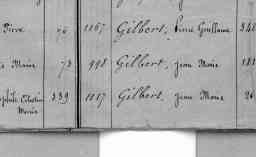 Pierre 76 1167 Gilbert, Pierre Guillaume 348
Marie 73 998 Gilbert, Jean Marie 181
Célestin 339 1017 Gilbert, Jean Marie 26
Marie